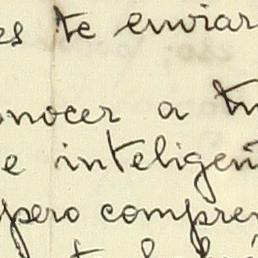 es te enviar
onocer a tu
e inteligen
pero compre